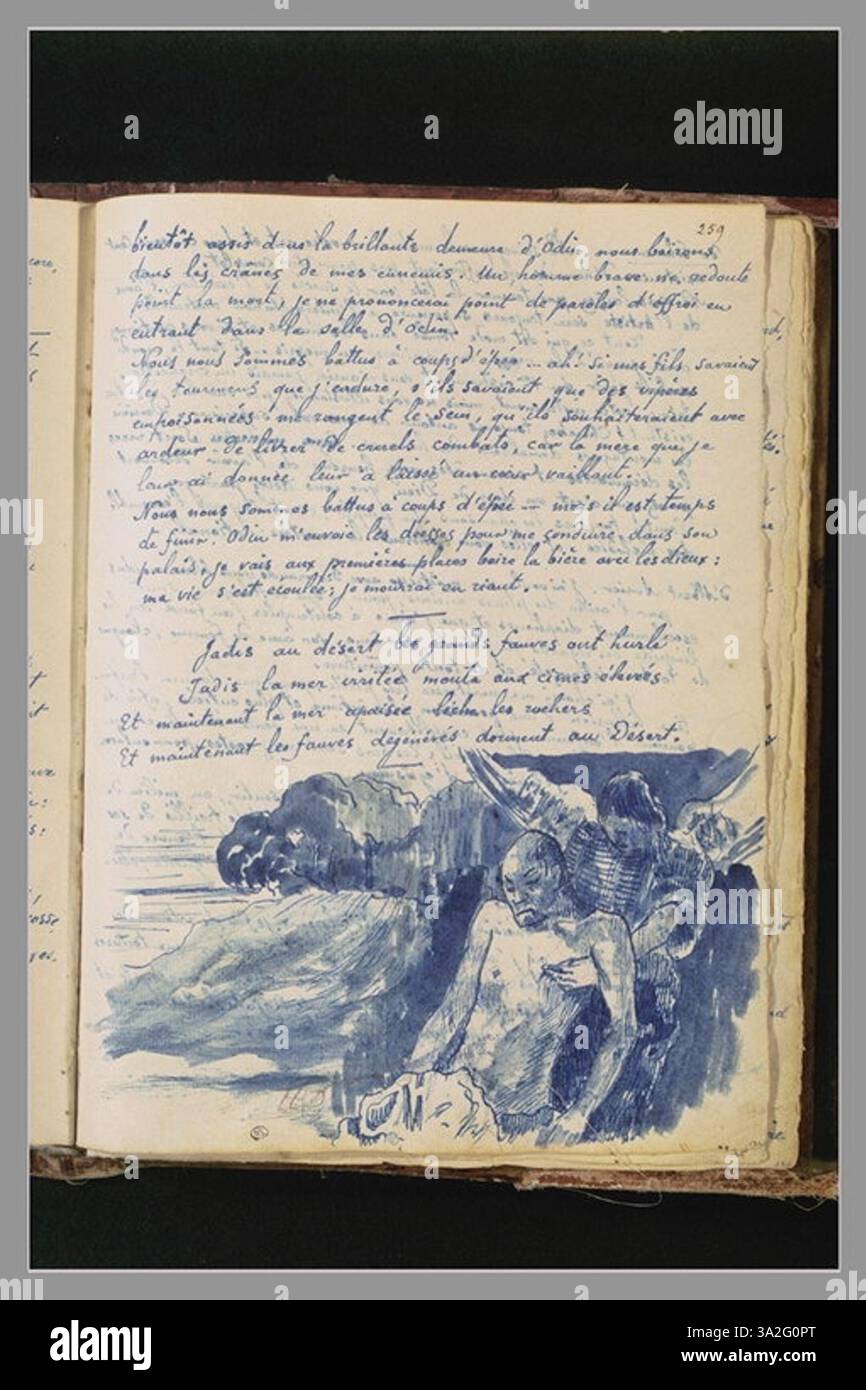 259
bientôt assis dans la brillante demeure d'Odin nous boirons
dans les crânes de mes ennemis. Un homme brave ne redoute
point la mort, je ne prononcerai point de paroles d'effroi en
entrant dans la salle d'Odin.
Nous nous sommes battus à coups d'épée — ah! si mes fils savaient
les tourmens que j'endure, s'ils savaient que des vipères
empoisonnées me rongent le sein, qu'ils souhaiteraient avec
ardeur de livrer de cruels combats, car la mère que je
leur ai donnée leur a laissé un cœur vaillant.
Nous nous sommes battus à coups d'épée — mais il est temps
de finir. Odin m'envoie les déesses pour me conduire dans son
palais, je vais aux premières places boire la bière avec les dieux:
ma vie s'est écoulée; je mourrai en riant.
Jadis au désert les grands fauves ont hurlé
Jadis la mer irritée monta aux cimes élevées
Et maintenant la mer apaisée lèche les rochers
Et maintenant les fauves dégénérés dorment au Désert.
alamy
Image ID: 3A2G0PT
www.alamy.com